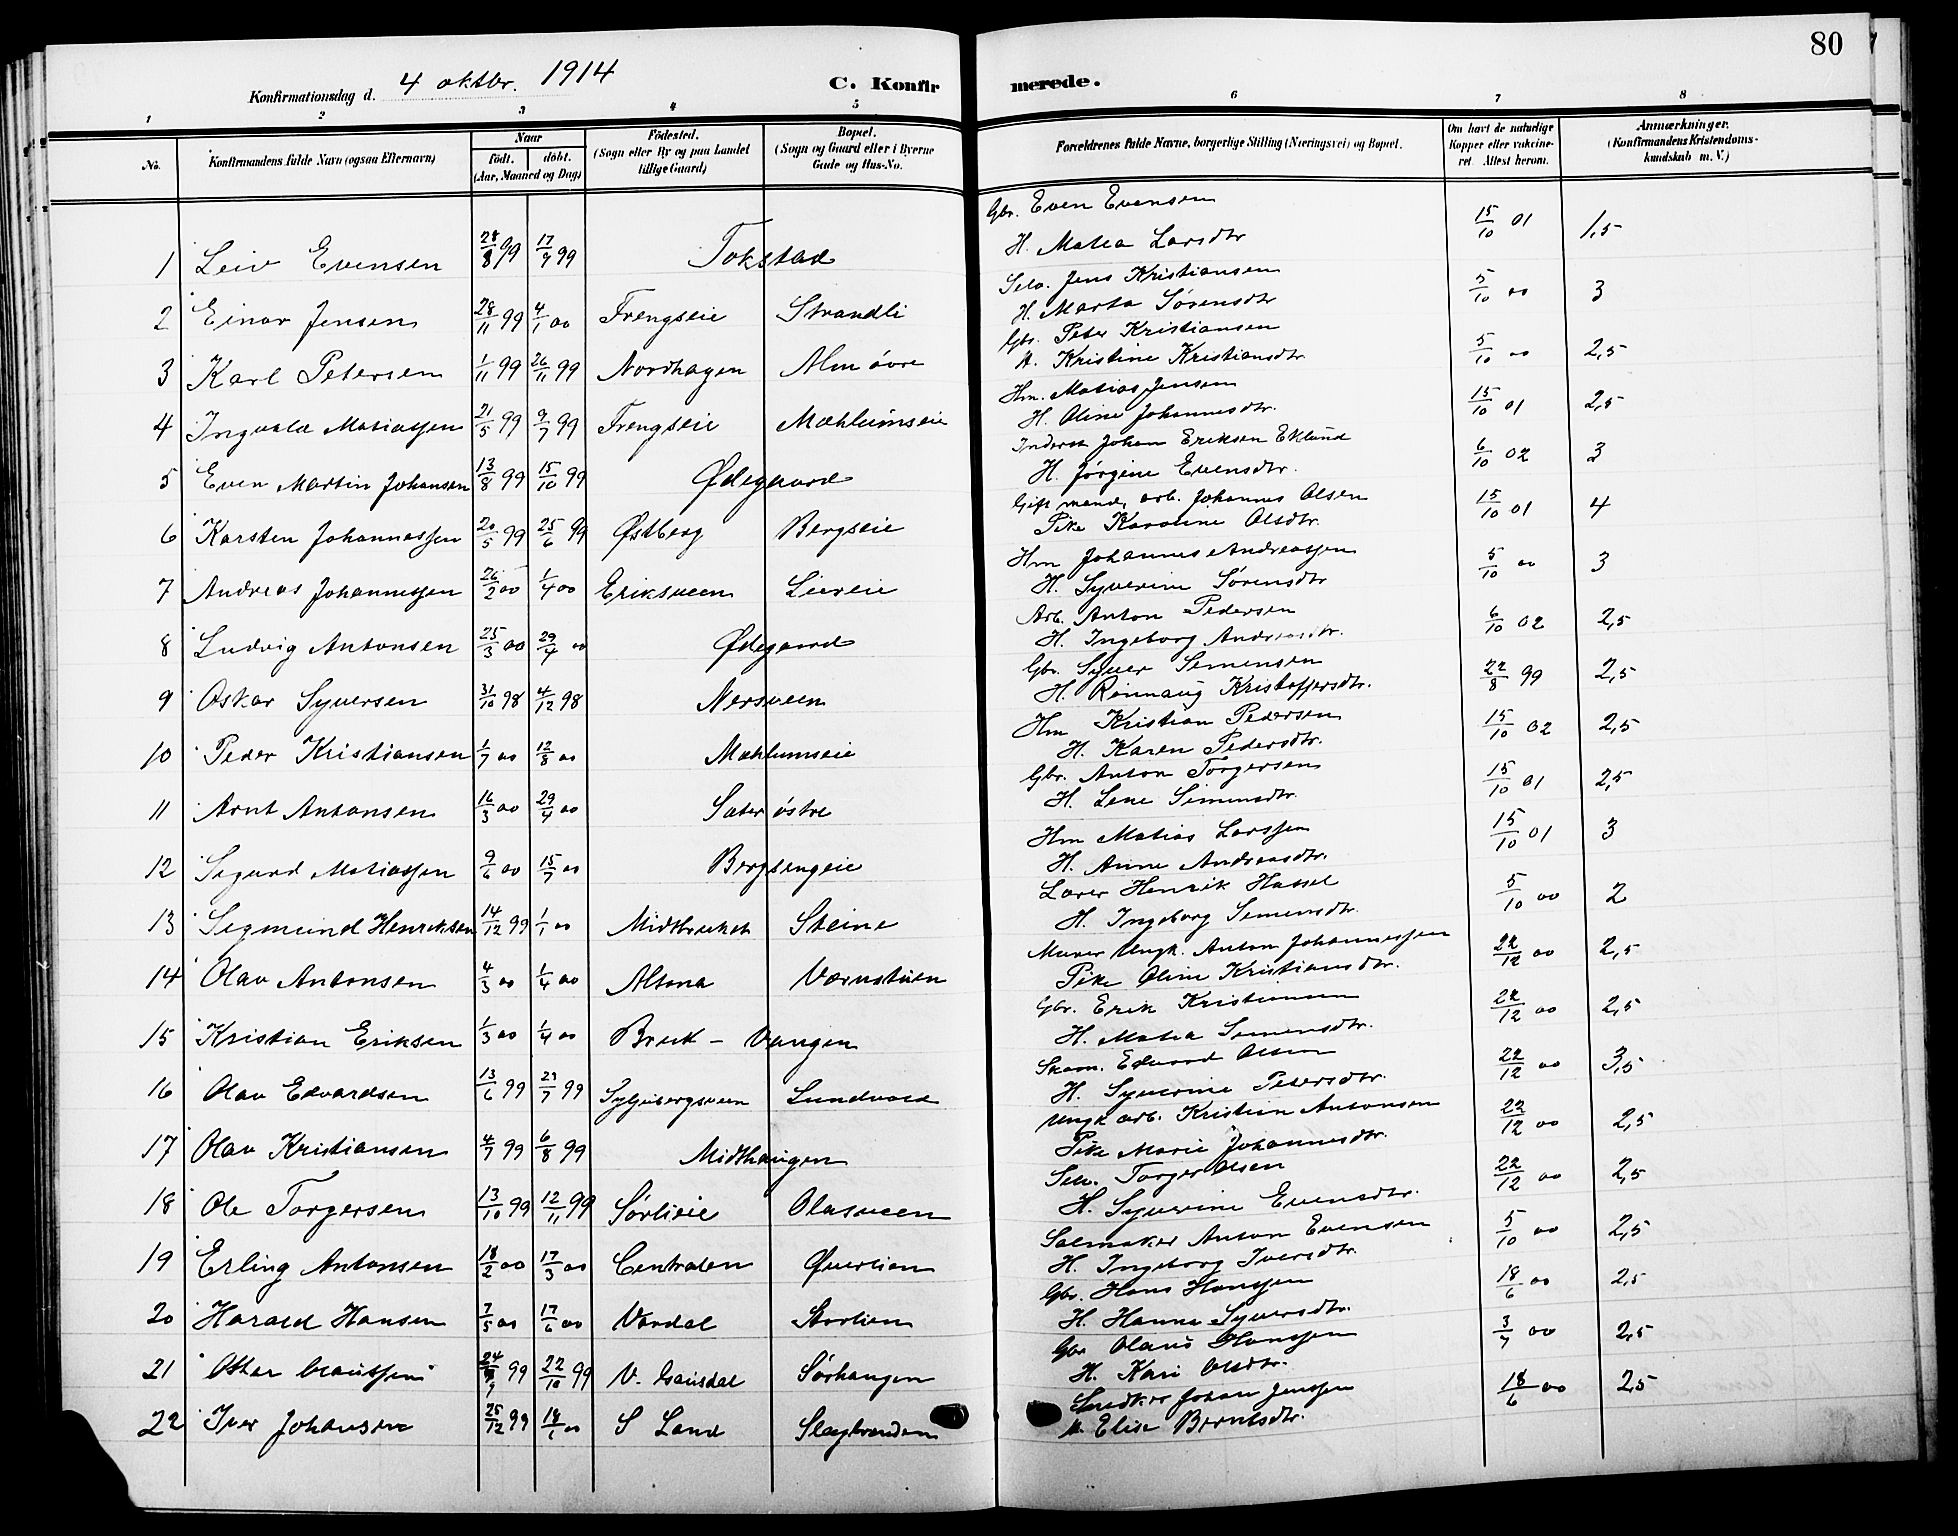 80
Konfirmationsdag d. 4 oktbr. 1914
C. Konfirmerede.
1 2 3 4 5 6 7 8
No. Konfirmandens fulde Navn (ogsaa Efternavn) Naar født. døbt. (Aar, Maaned og Dag) Fødested. (Sogn eller By og paa Landet tillige Gaard) Bopæl. (Sogn og Gaard eller i Byerne Gade og Hus-No. Forældrenes fulde Navne, borgerlige Stilling (Næringsvei) og Bopæl. Om havt de naturlige Kopper eller vaccineret. Attest herom. Anmærkninger. (Konfirmandens Kristendomskundskab m. V.)
Gbr. Even Evensen
1 Leiv Evensen 28/8 99 17/9 99 Tokstad H. Matea Larsdtr 15/10 01 1,5
Selv. Jens Kristiansen
2 Einar Jensen 28/11 99 4/1 00 Frengseie Strandli H. Marta Sørensdtr 5/10 00 3
Gbr. Peter Kristiansen
3 Karl Petersen 1/11 99 26/11 99 Nordhagen Alm øvre H. Kristine Kristiansdtr. 5/10 00 2,5
Hm. Matias Jensen
4 Ingvald Matiassen 21/5 99 9/7 99 Frengseie Mæhlumseie H. Oline Johannesdtr. 15/10 01 2,5
Inderst Johan Eriksen Eklund
5 Even Martin Johansen 13/8 99 15/10 99 Ødegaard H. Jørgine Evensdtr. 6/10 02 3
Gift mand, arb. Johannes Olsen
6 Karsten Johannessen 20/5 99 25/6 99 Østberg Bergseie Pike Karoline Olsdtr. 15/10 01 4
Hm Johannes Andreassen
7 Andreas Johannessen 26/2 00 1/4 00 Eriksveen Liereie H. Syverine Sørensdtr 5/10 00 3
Arb. Anton Pedersen
8 Ludvig Antonsen 25/3 00 29/4 00 Ødegaard H. Ingeborg Andreasdtr. 6/10 02 2,5
Gbr. Syver Simensen
9 Oskar Syversen 31/10 98 4/12 98 Nersveen H. Rønnaug Kristoffersdtr. 22/8 99 2,5
Hm Kristian Pedersen
10 Peder Kristiansen 1/7 00 12/8 00 Mæhlumseie H. Karen Pedersdtr. 15/10 02 2,5
Gbr. Anton Torgersen
11 Arnt Antonsen 16/3 00 29/4 00 Sæter østre H. Lene Simensdtr. 15/10 01 2,5
Hm Matias Larssen
12 Sigurd Matiassen 9/6 00 15/7 00 Bergsengeie H. Anne Andreasdtr. 15/10 01 3
Lærer Henrik Hassel
13 Sigmund Henriksen 14/12 99 1/1 00 Midtbruket Steine H. Ingeborg Simensdtr. 5/10 00 2
Murer Ungk. Anton Johannessen
14 Olav Antonsen 4/3 00 1/4 00 Altona Værnstuen Pike Oline Kristiansdtr. 22/12 00 2,5
Gbr. Erik Kristiansen
15 Kristian Eriksen 1/3 00 1/4 00 Bruk - Vangen H. Matea Simensdtr. 22/12 00 2,5
Skom. Edvard Olsen
16 Olav Edvardsen 13/6 99 29/7 99 Syljubergsveen Lundvold H. Syverine Petersdtr. 22/12 00 3,5
Ungk. arb. Kristian Antonsen
17 Olav Kristiansen 4/7 99 6/8 99 Midthaugen Pike Marie Johannesdtr. 22/12 00 2,5
Selv. Torger Olsen
18 Ole Torgersen 13/10 99 12/11 99 Sørlieie Olasveen H. Syverine Evensdtr. 22/12 00 2,5
Salmaker Anton Evensen
19 Erling Antonsen 18/2 00 17/3 00 Centralen Øverlien H. Ingeborg Iversdtr. 5/10 00 2,5
Gbr. Hans Hanssen
20 Harald Hansen 7/5 00 17/6 00 Vardal Storlien H. Hanna Syversdtr. 18/6 00 2,5
Gbr Olaus Hanssen
21 Ottar Olaussen 24/9 99 22/10 99 V. Gausdal Sørhaugen H. Kari Olsdtr. 3/7 00 2,5
Snedker Johan Jenssen
22 Iver Johansen 25/12 99 18/1 00 S Land Slagbrenden H. Elise Berntsdtr. 18/6 00 2,5